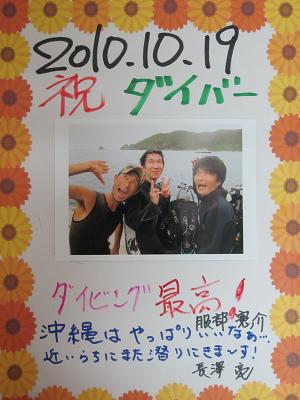 2010.10.19
祝 ダイバー
ダイビング 最高!
服部憲介
沖縄は やっぱりいいなぁ…
近いうちにまた潜りにきまーす!
長澤